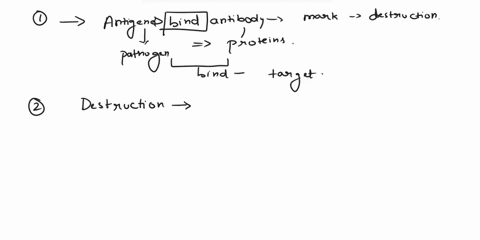 ① → Antigen → bind antibody → mark → destruction.
pathogen => proteins.
bind - target.
② Destruction →